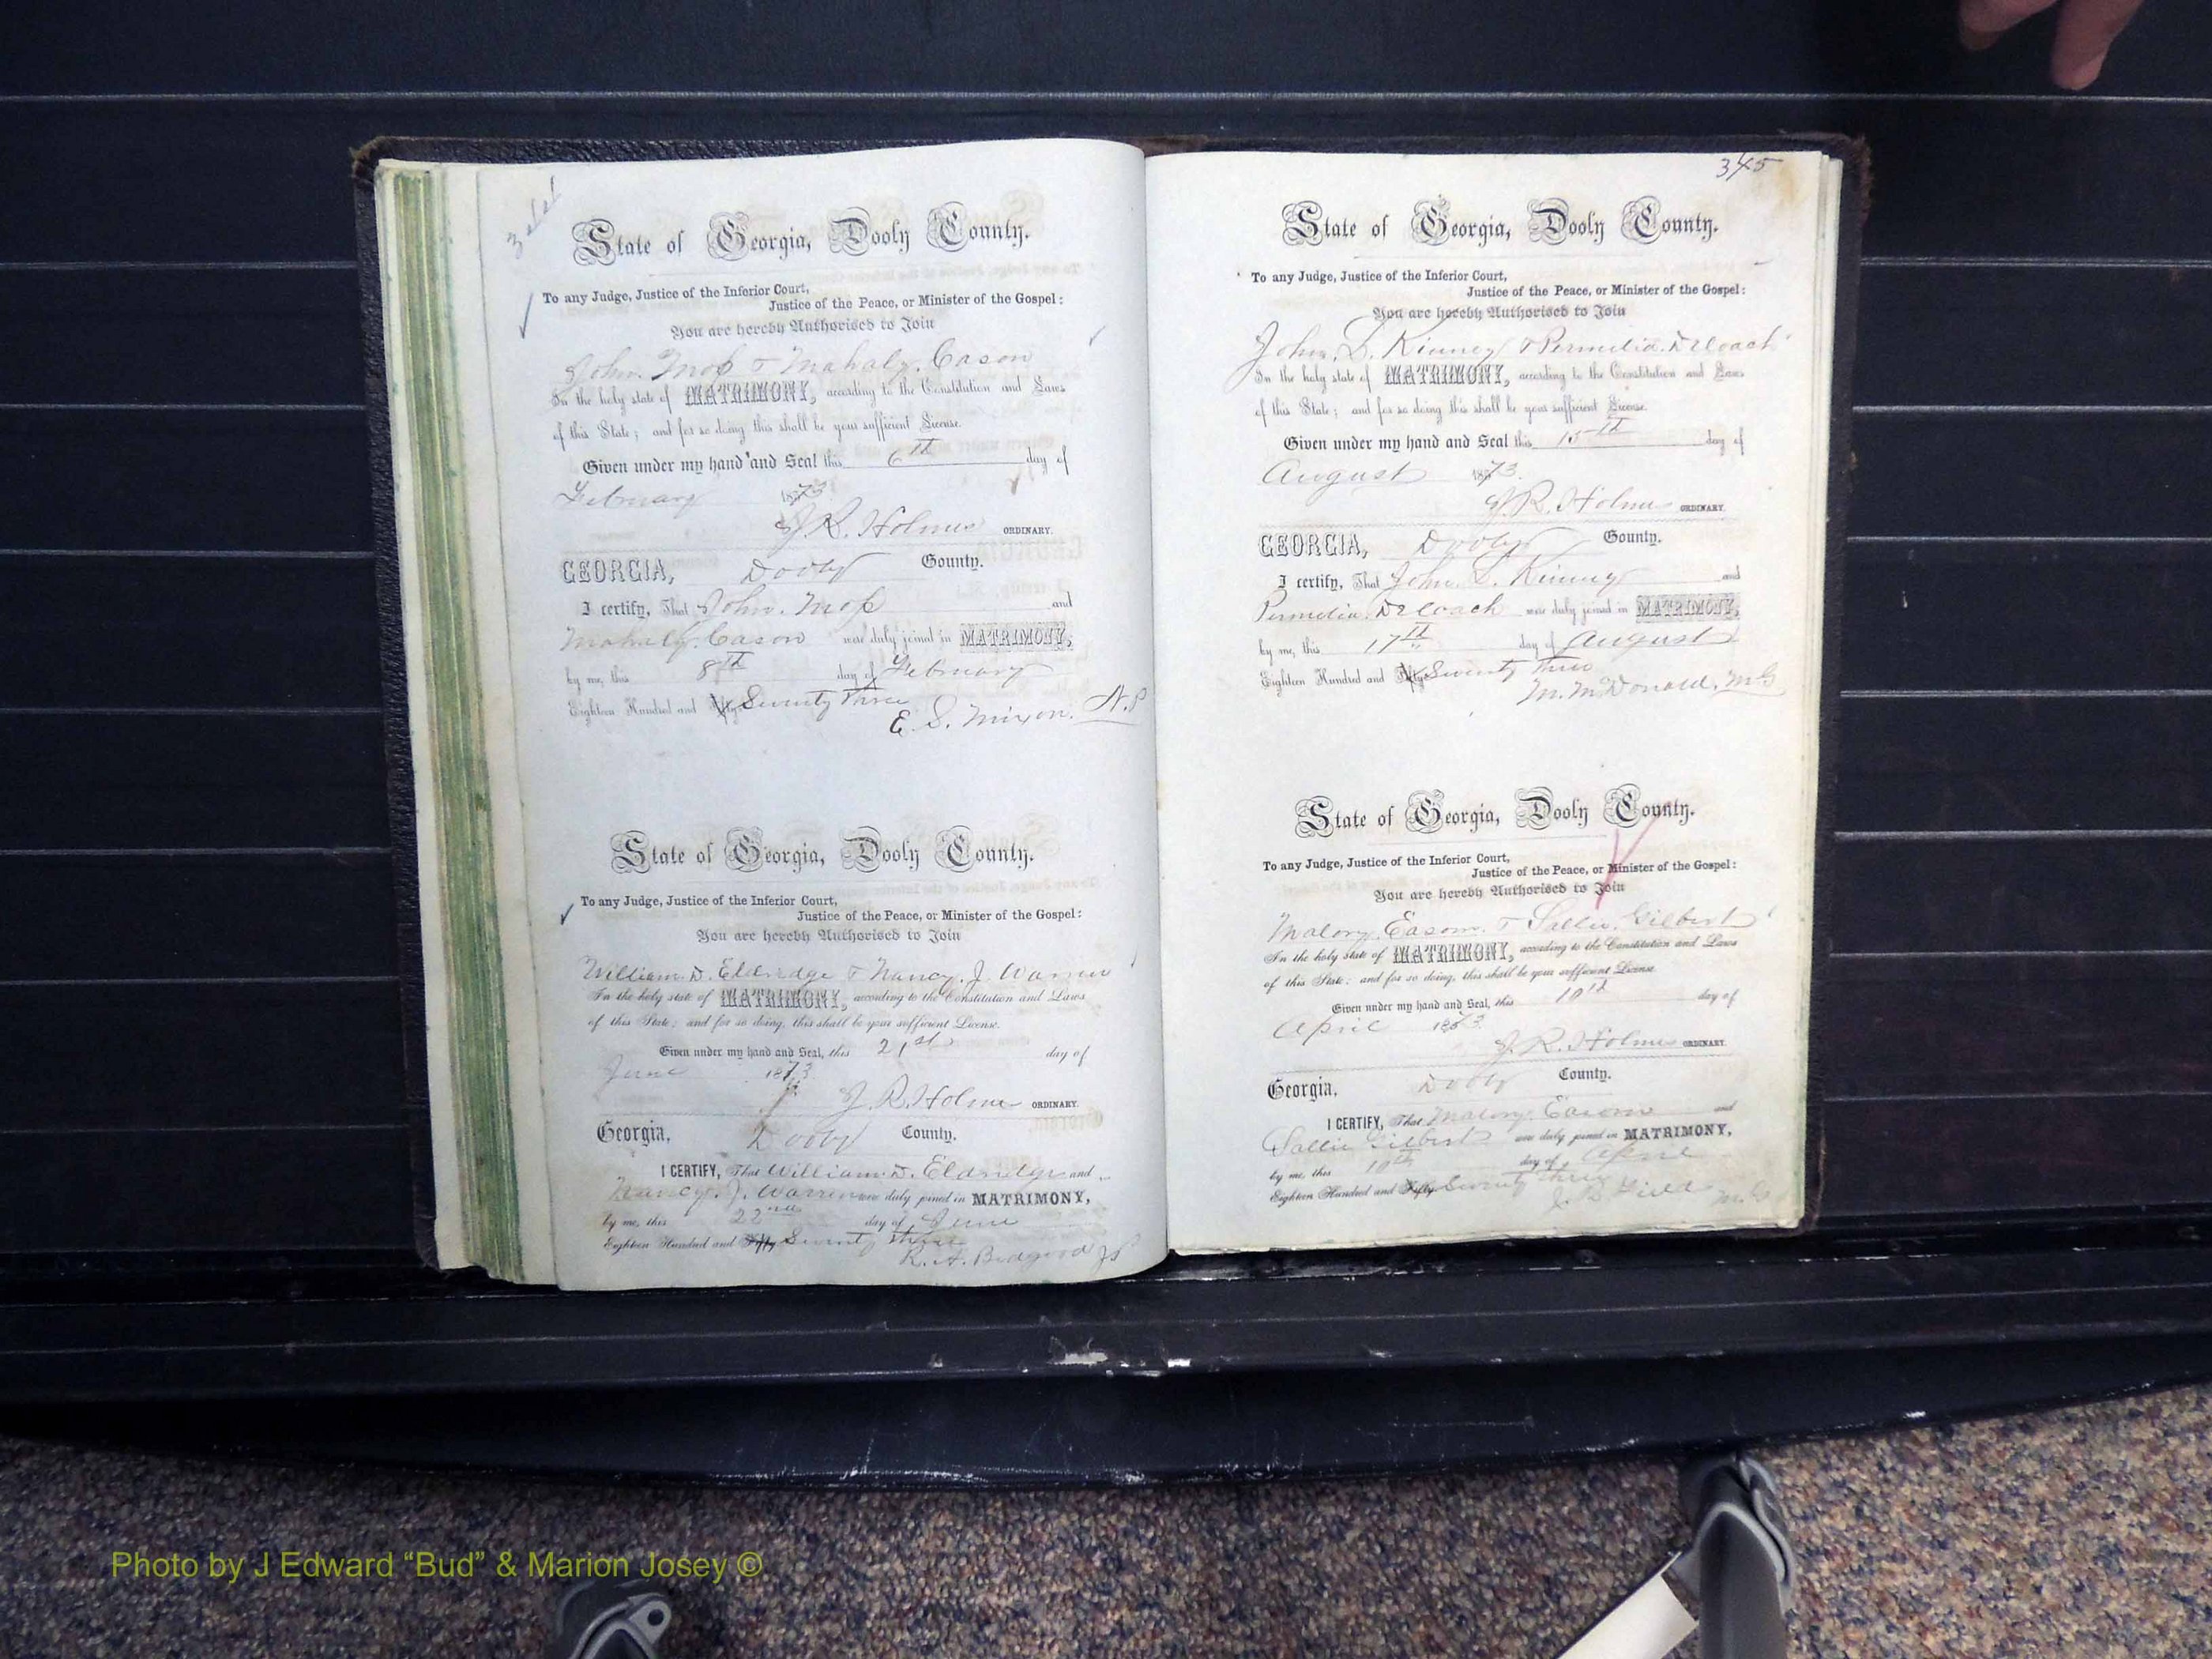 State of Georgia, Dooly County.
To any Judge, Justice of the Inferior Court,
Justice of the Peace, or Minister of the Gospel:
You are hereby Authorised to Join
John. Moss & Mahaly. Cason
In the holy state of MATRIMONY, according to the Constitution and Laws
of this State; and for so doing this shall be your sufficient License.
Given under my hand and Seal this 6th day of
February 1873
J. R. Holmes ORDINARY.
GEORGIA, Dooly County.
I certify, That John. Moss and
Mahaly. Cason were duly joined in MATRIMONY,
by me, this 8th day of February
Eighteen Hundred and Fifty Seventy Three
E. S. Mixon. N.P
State of Georgia, Dooly County.
To any Judge, Justice of the Inferior Court,
Justice of the Peace, or Minister of the Gospel:
You are hereby Authorised to Join
William. D. Eldredge & Nancy. J. Warren
In the holy state of MATRIMONY, according to the Constitution and Laws
of this State; and for so doing, this shall be your sufficient License.
Given under my hand and Seal, this 21st day of
June 1873
J. R. Holmes ORDINARY.
Georgia, Dooly County.
I CERTIFY, That William. D. Eldredge and
Nancy. J. Warren were duly joined in MATRIMONY,
by me, this 22nd day of June
Eighteen Hundred and Fifty Seventy three
R. H. Bedgood JP
345
State of Georgia, Dooly County.
To any Judge, Justice of the Inferior Court,
Justice of the Peace, or Minister of the Gospel:
You are hereby Authorised to Join
John. L. Kinney & Permelia. DeLoach
In the holy state of MATRIMONY, according to the Constitution and Laws
of this State; and for so doing this shall be your sufficient License.
Given under my hand and Seal this 15th day of
August 1873.
J. R. Holmes ORDINARY.
GEORGIA, Dooly County.
I certify, That John. L. Kinney and
Permelia. DeLoach were duly joined in MATRIMONY,
by me, this 17th day of August
Eighteen Hundred and Fifty Seventy Three
M. McDonald. M.G
State of Georgia, Dooly County.
To any Judge, Justice of the Inferior Court,
Justice of the Peace, or Minister of the Gospel:
You are hereby Authorised to Join
Malory. Eason. & Sallie. Gilbert
In the holy state of MATRIMONY, according to the Constitution and Laws
of this State; and for so doing, this shall be your sufficient License.
Given under my hand and Seal, this 10th day of
April 1873
J. R. Holmes ORDINARY.
Georgia, Dooly County.
I CERTIFY, That Malory. Eason and
Sallie Gilbert were duly joined in MATRIMONY,
by me, this 10th day of April
Eighteen Hundred and Fifty Seventy three
Field M.G
Photo by J Edward “Bud” & Marion Josey ©